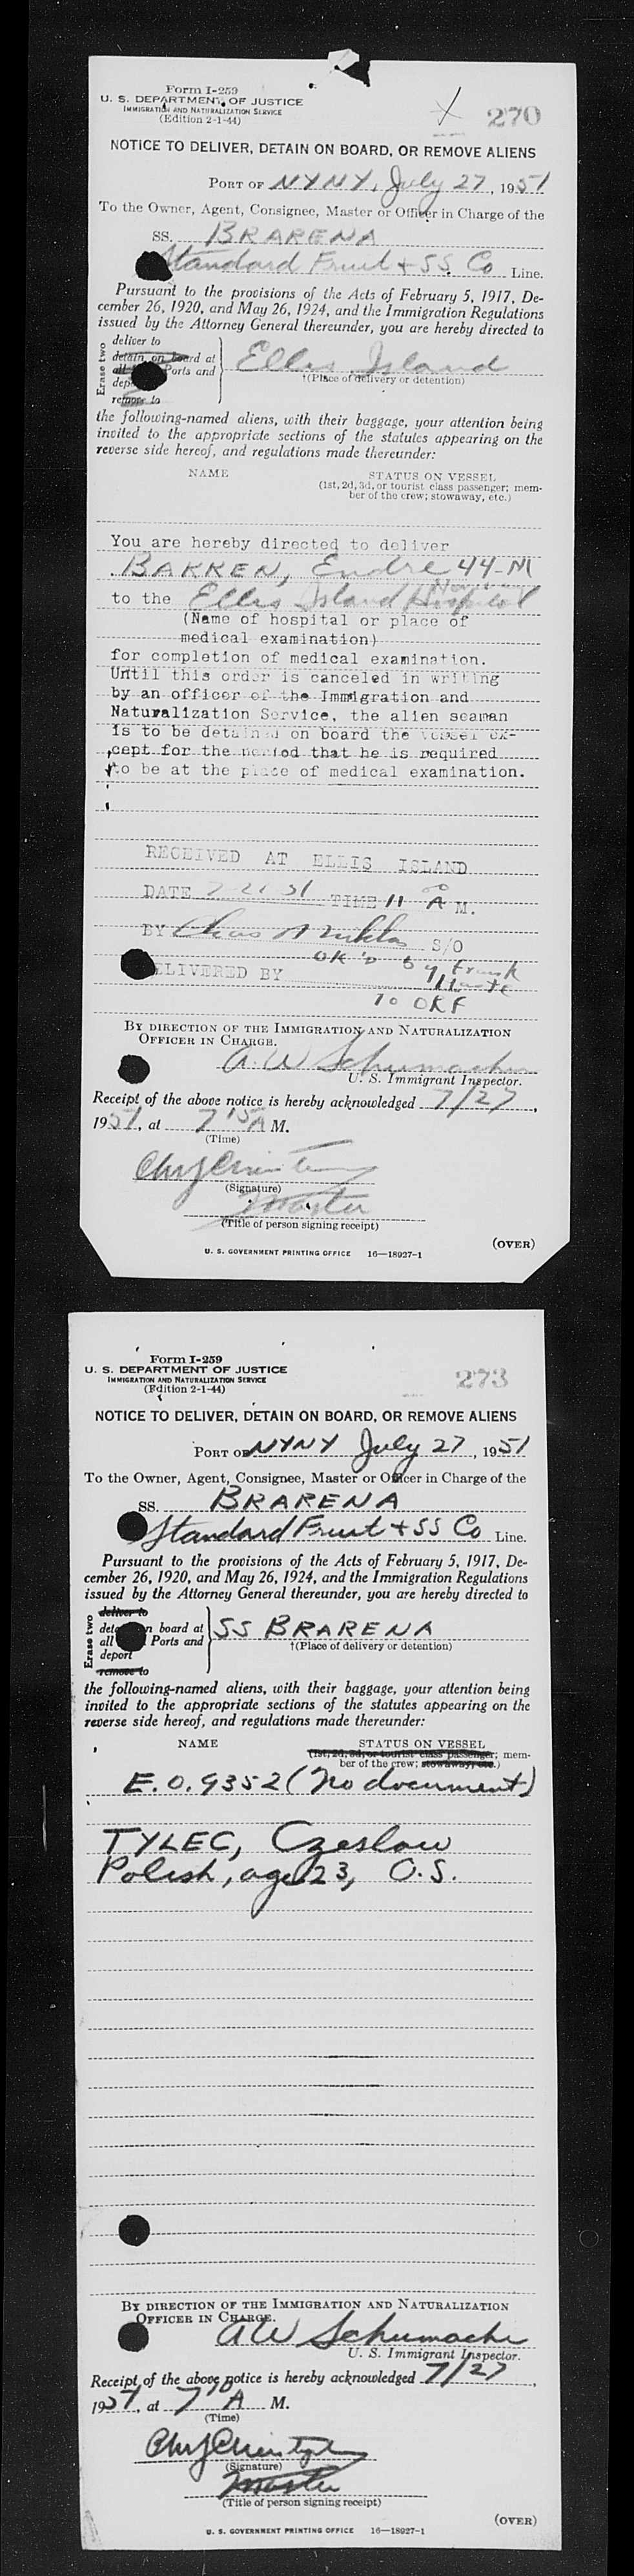 Form I-259
U. S. DEPARTMENT OF JUSTICE
IMMIGRATION AND NATURALIZATION SERVICE
(Edition 2-1-44)
270
NOTICE TO DELIVER, DETAIN ON BOARD, OR REMOVE ALIENS
PORT OF NYNY, July 27, 1951
To the Owner, Agent, Consignee, Master or Officer in Charge of the
SS. BRARENA
Standard Fruit + SS. Co Line.
Pursuant to the provisions of the Acts of February 5, 1917, De-
cember 26, 1920, and May 26, 1924, and the Immigration Regulations
issued by the Attorney General thereunder, you are hereby directed to
Erase two
deliver to
detain on board at
all Ports and
remove to
Ellis Island
†(Place of delivery or detention)
the following-named aliens, with their baggage, your attention being
invited to the appropriate sections of the statutes appearing on the
reverse side hereof, and regulations made thereunder:
NAME STATUS ON VESSEL
(1st, 2d, 3d, or tourist class passenger; mem-
ber of the crew; stowaway, etc.)
You are hereby directed to deliver
BAKKEN, Endre 44-M
to the Ellis Island Hospital
(Name of hospital or place of
medical examination)
for completion of medical examination.
Until this order is canceled in writing
by an officer of the Immigration and
Naturalization Service, the alien seaman
is to be detained on board the vessel ex-
cept for the period that he is required
to be at the place of medical examination.
RECEIVED AT ELLIS ISLAND
DATE TIME 11 00 A M.
BY S/O
OK'D by Frank
DELIVERED BY
TO
BY DIRECTION OF THE IMMIGRATION AND NATURALIZATION
OFFICER IN CHARGE.
A. W Schumacher
U. S. Immigrant Inspector.
Receipt of the above notice is hereby acknowledged 7/27,
1951, at 7 15 A M.
(Time)
(Signature)
Master
(Title of person signing receipt)
(OVER)
U. S. GOVERNMENT PRINTING OFFICE 16—18927-1
Form I-259
U. S. DEPARTMENT OF JUSTICE
IMMIGRATION AND NATURALIZATION SERVICE
(Edition 2-1-44)
273
NOTICE TO DELIVER, DETAIN ON BOARD, OR REMOVE ALIENS
PORT OF NYNY July 27, 1951
To the Owner, Agent, Consignee, Master or Officer in Charge of the
SS. BRARENA
Standard Fruit + SS Co Line.
Pursuant to the provisions of the Acts of February 5, 1917, De-
cember 26, 1920, and May 26, 1924, and the Immigration Regulations
issued by the Attorney General thereunder, you are hereby directed to
Erase two
deliver to
detain on board at
all Ports and
deport
remove to
SS BRARENA
†(Place of delivery or detention)
the following-named aliens, with their baggage, your attention being
invited to the appropriate sections of the statutes appearing on the
reverse side hereof, and regulations made thereunder:
NAME STATUS ON VESSEL
(1st, 2d, 3d, or tourist class passenger; mem-
ber of the crew; stowaway, etc.)
E.O. 9352 (No document)
TYLEC, Czeslaw
Polish, age 23, O.S.
BY DIRECTION OF THE IMMIGRATION AND NATURALIZATION
OFFICER IN CHARGE.
A W Schumacher
U. S. Immigrant Inspector.
Receipt of the above notice is hereby acknowledged 7/27,
1951, at 7 10 A M.
(Time)
(Signature)
Master
(Title of person signing receipt)
(OVER)
U. S. GOVERNMENT PRINTING OFFICE 16—18927-1